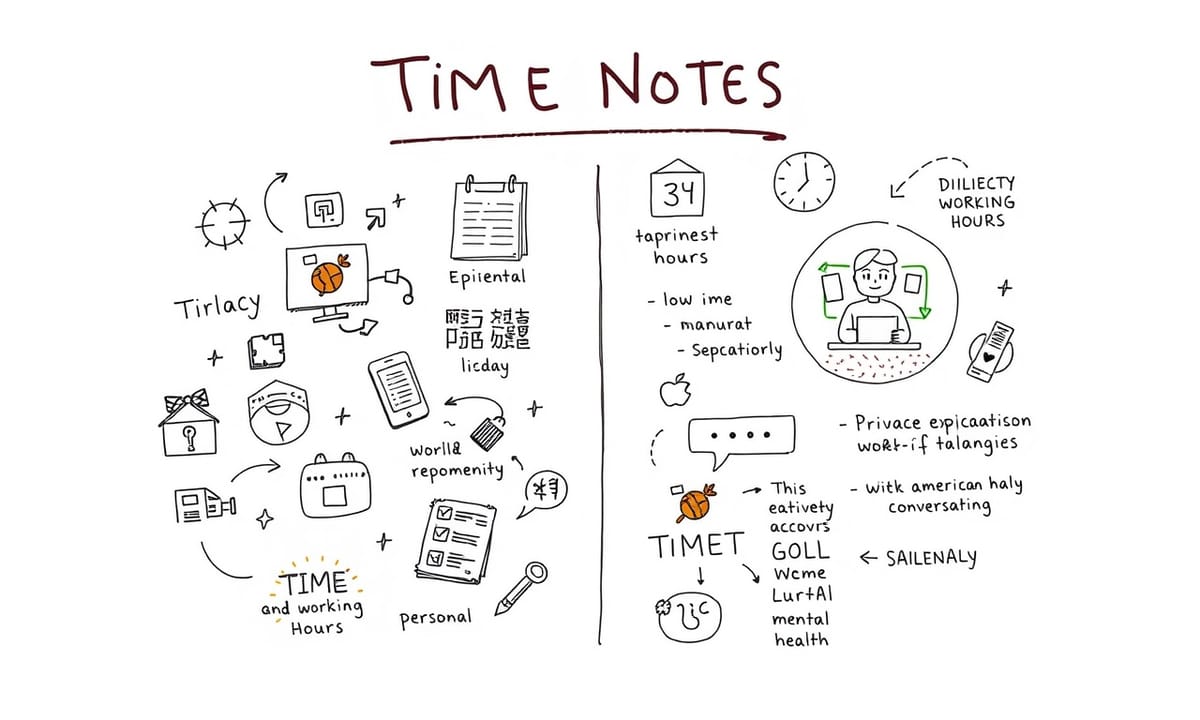 TiME NOTES
Tirlacy
Epiiental
licday
worll&
repomenity
TIME
and working
Hours
personal
34
taprinest
hours
- low ime
- manurat
- Sepcatiorly
DIILIECTY
WORKING
HOURS
- Privace epicaatison
work-if talangies
- witk american haly
conversating
This
eativety
accovrs
TIMET
GOLL
← SAILENALY
Wcme
LurtAl
mental
health